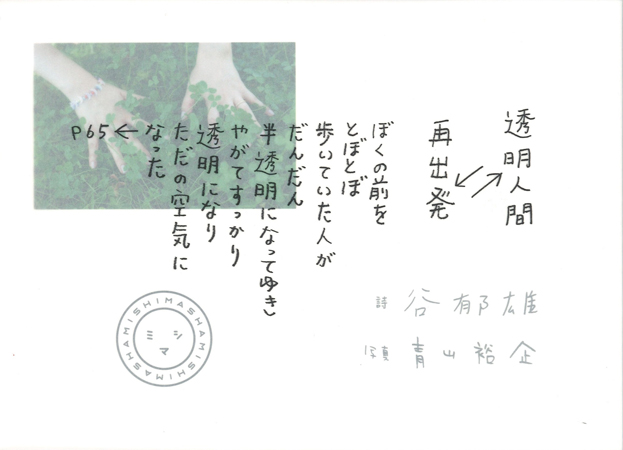 透明人間
再出発
ぼくの前を
とぼとぼ
歩いていた人が
だんだん
半透明になってゆき
やがてすっかり
透明になり
ただの空気に
なった
P65
詩 谷郁雄
写真 青山裕企
MISHIMASHAMISHIMASHAMISHIMASHA
ミシマ